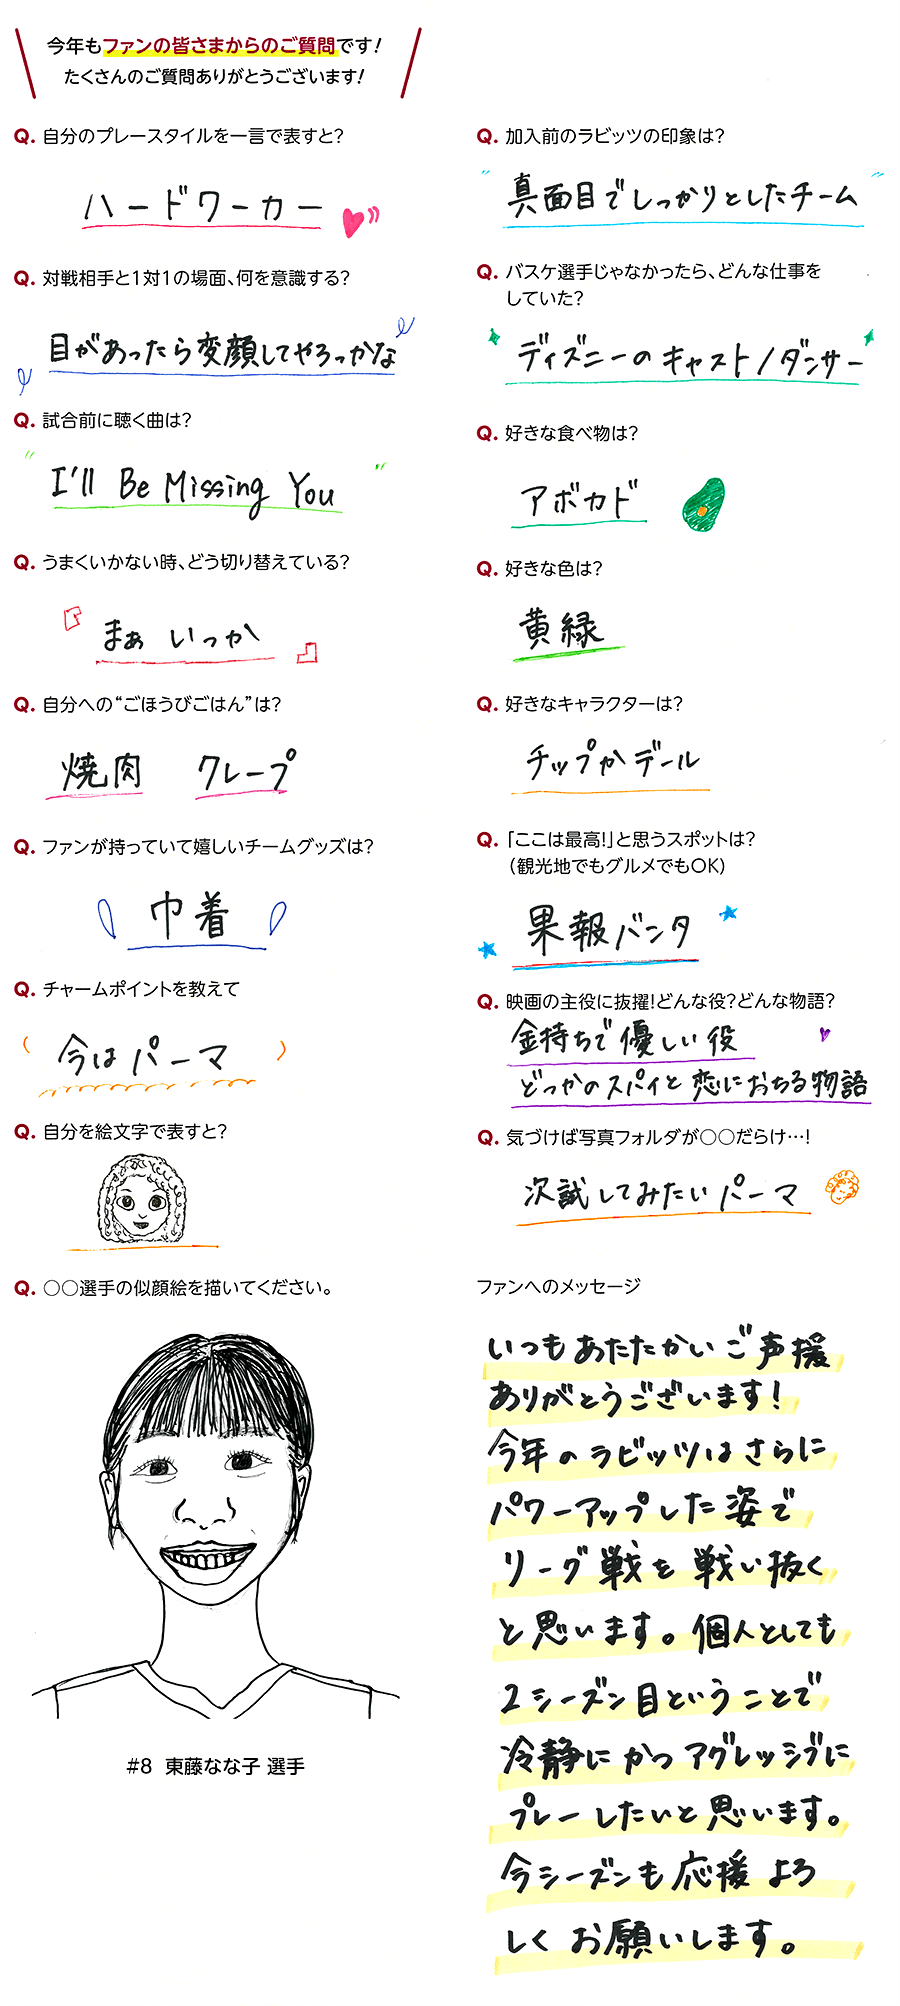 今年もファンの皆さまからのご質問です!
たくさんのご質問ありがとうございます!
Q. 自分のプレースタイルを一言で表すと?
ハードワーカー
Q. 対戦相手と1対1の場面、何を意識する?
目があったら変顔してやろっかな
Q. 試合前に聴く曲は?
I'll Be Missing You
Q. うまくいかない時、どう切り替えている?
まぁ いっか
Q. 自分への“ごほうびごはん”は?
焼肉 クレープ
Q. ファンが持っていて嬉しいチームグッズは?
巾着
Q. チャームポイントを教えて
今はパーマ
Q. 自分を絵文字で表すと?
Q. ○○選手の似顔絵を描いてください。
#8 東藤なな子 選手
Q. 加入前のラビッツの印象は?
真面目でしっかりとしたチーム
Q. バスケ選手じゃなかったら、どんな仕事を
していた?
ディズニーのキャスト/ダンサー
Q. 好きな食べ物は?
アボカド
Q. 好きな色は?
黄緑
Q. 好きなキャラクターは?
チップかデール
Q. 「ここは最高!」と思うスポットは?
(観光地でもグルメでもOK)
果報バンタ
Q. 映画の主役に抜擢!どんな役?どんな物語?
金持ちで優しい役
どっかのスパイと恋におちる物語
Q. 気づけば写真フォルダが○○だらけ…!
次試してみたいパーマ
ファンへのメッセージ
いつもあたたかいご声援
ありがとうございます!
今年のラビッツはさらに
パワーアップした姿で
リーグ戦を戦い抜く
と思います。個人としても
2シーズン目ということで
冷静にかつアグレッシブに
プレーしたいと思います。
今シーズンも応援よろ
しくお願いします。